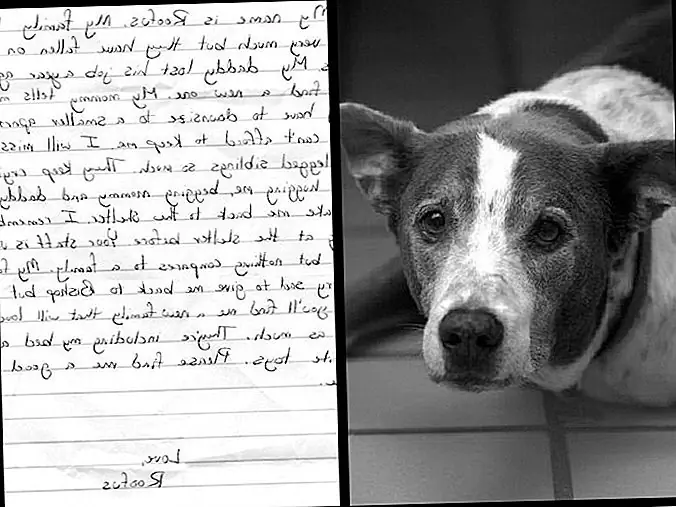 My name is Roofus. My family
very much but they have fallen on
s. My daddy lost his job a year ag
find a new one. My mommy tells m
have to downsize to a smaller apar
can't afford to keep me. I will miss
legged siblings so much. They keep cryi
hugging me, begging mommy and daddy
ake me back to the shelter. I rememb
at the shelter before. Your staff is
but nothing compares to a family. My f
ry sad to give me back to Bishop but
you'll find me a new family that will lov
as much. They're including my bed a
ite toys. Please find me a good
e.
Love,
Roofus